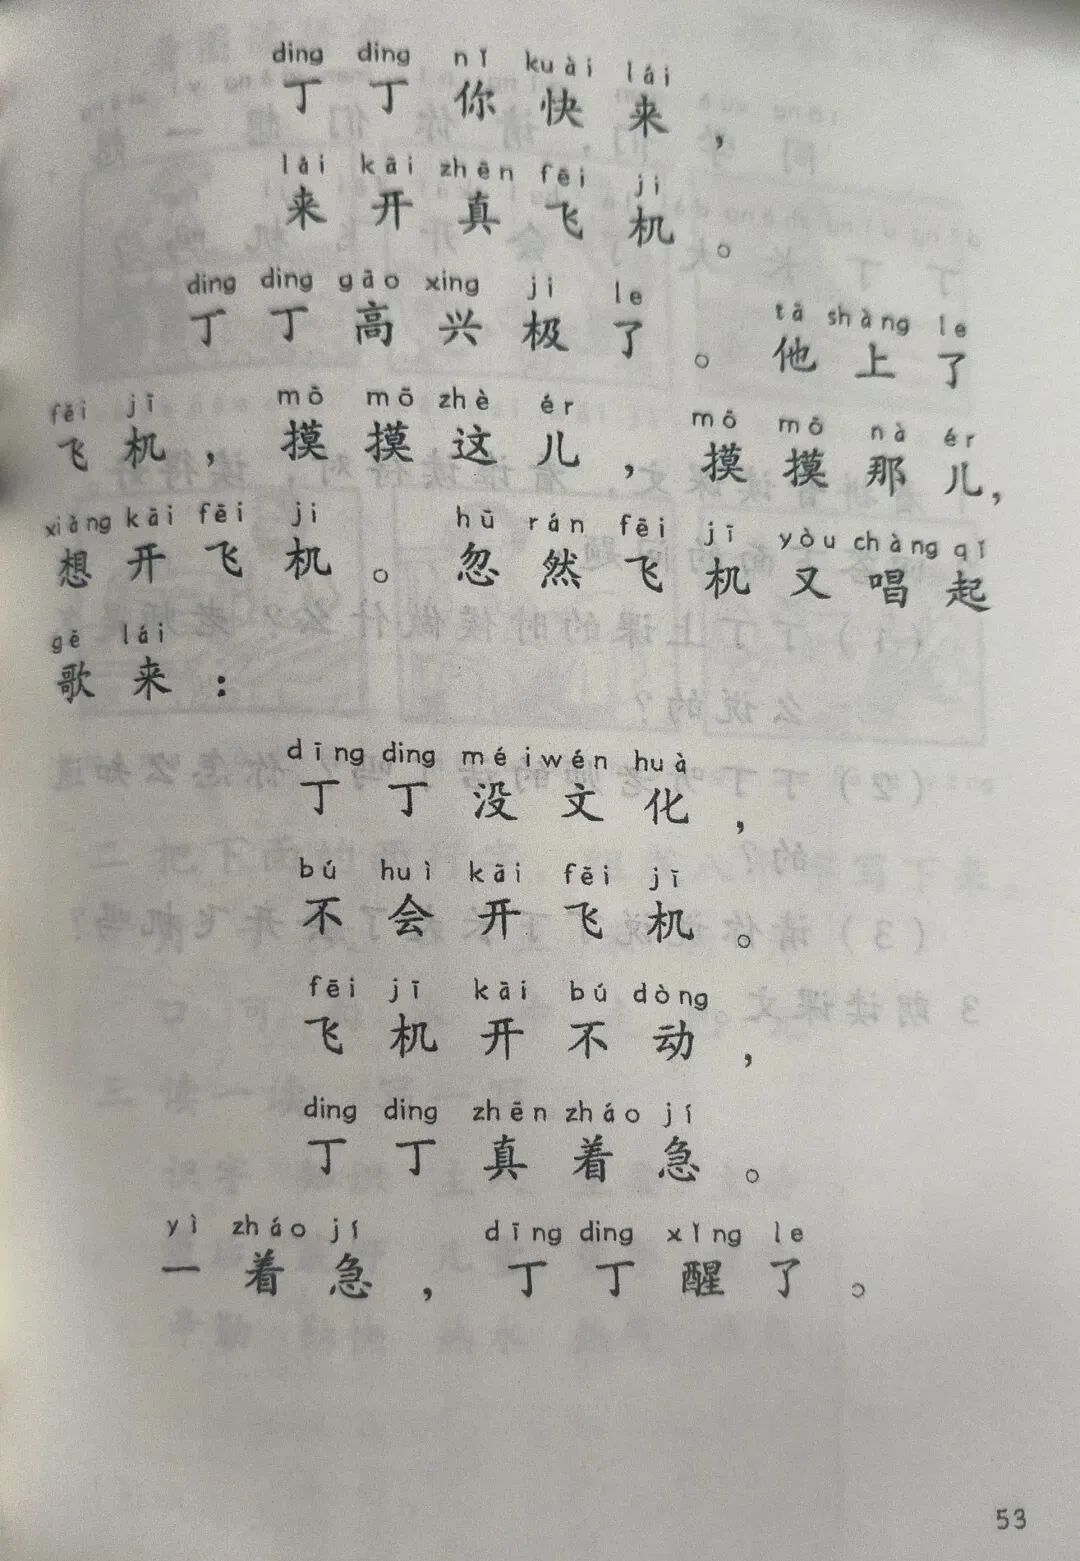 dīng dīng nǐ kuài lái
丁丁你快来，
lái kāi zhēn fēi jī
来开真飞机。
dīng dīng gāo xìng jí le tā shàng le
丁丁高兴极了。他上了
fēi jī mō mō zhè ér mō mō nà ér
飞机，摸摸这儿，摸摸那儿，
xiǎng kāi fēi jī hū rán fēi jī yòu chàng qǐ
想开飞机。忽然飞机又唱起
gē lái
歌来：
dīng dīng méi wén huà
丁丁没文化，
bú huì kāi fēi jī
不会开飞机。
fēi jī kāi bú dòng
飞机开不动，
dīng dīng zhēn zháo jí
丁丁真着急。
yì zháo jí dīng dīng xǐng le
一着急，丁丁醒了。
53